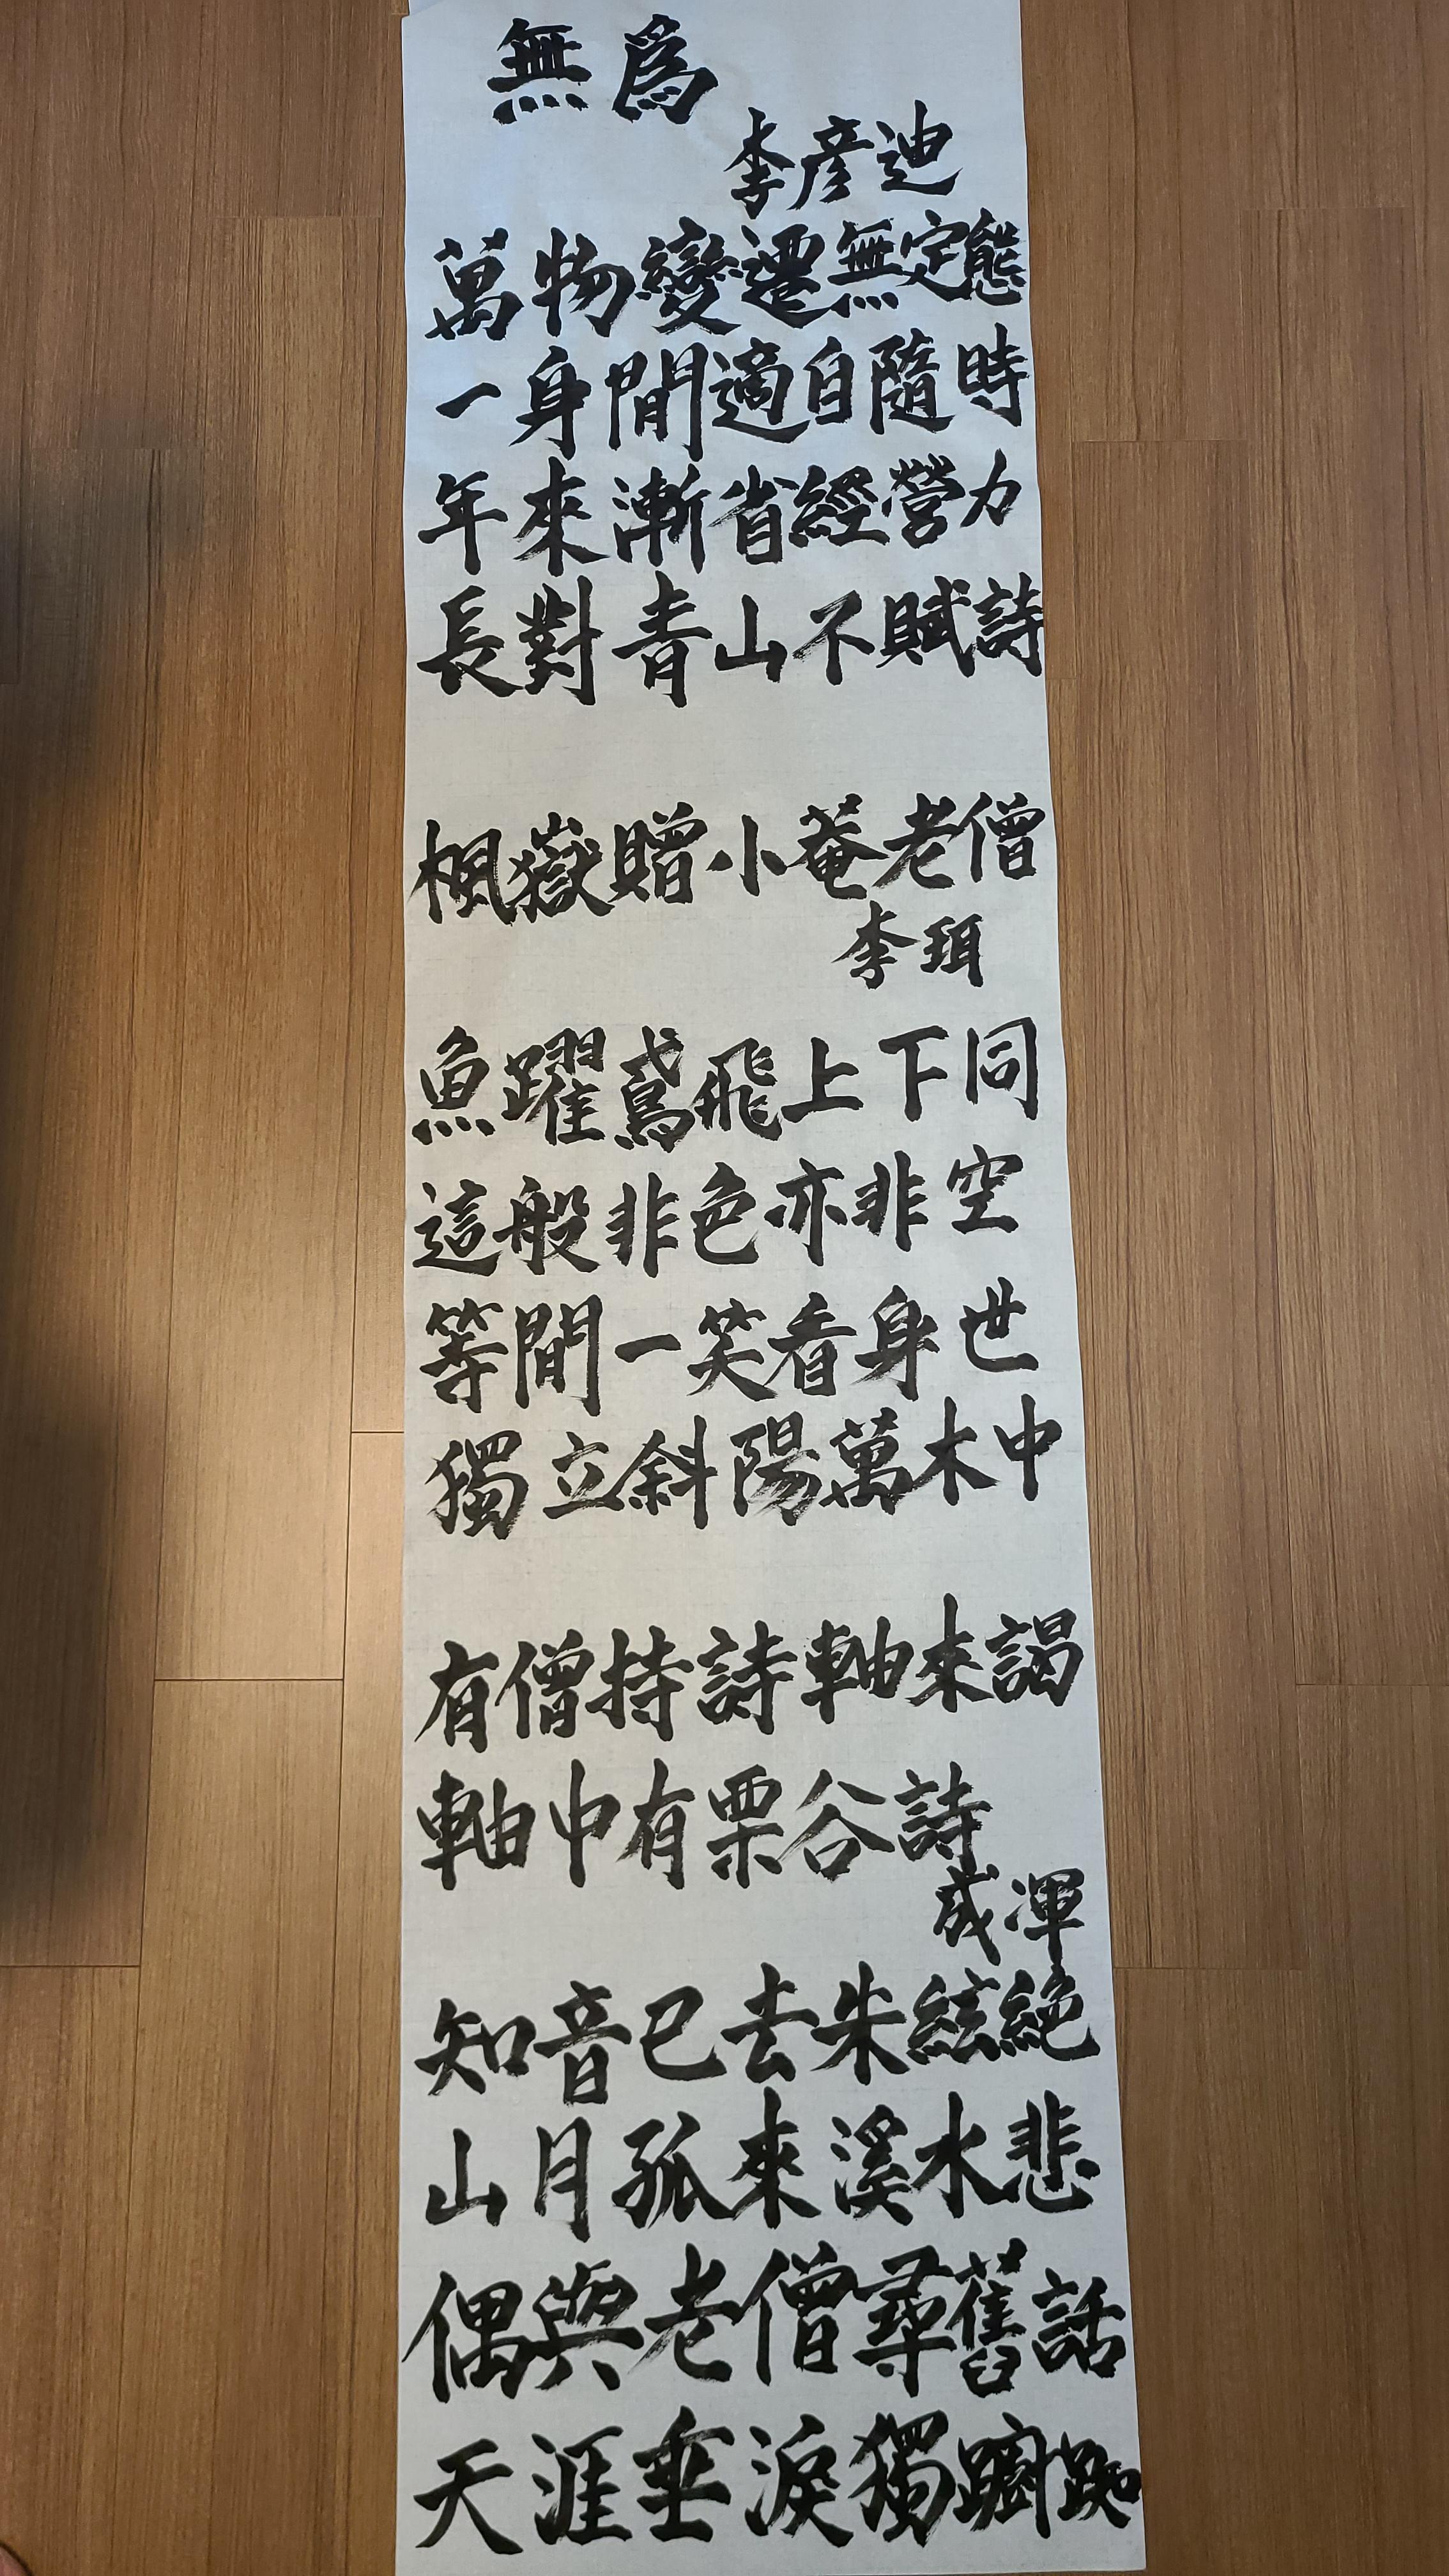 無爲
李彦迪
萬物變遷無定態
一身閒適自隨時
年來漸省經營力
長對青山不賦詩
楓嶽贈小菴老僧
李珥
魚躍鳶飛上下同
這般非色亦非空
等閒一笑看身世
獨立斜陽萬木中
有僧持詩軸來謁
軸中有栗谷詩
成渾
知音已去朱絃絶
山月孤來溪水悲
偶與老僧尋舊話
天涯垂淚獨躕踟